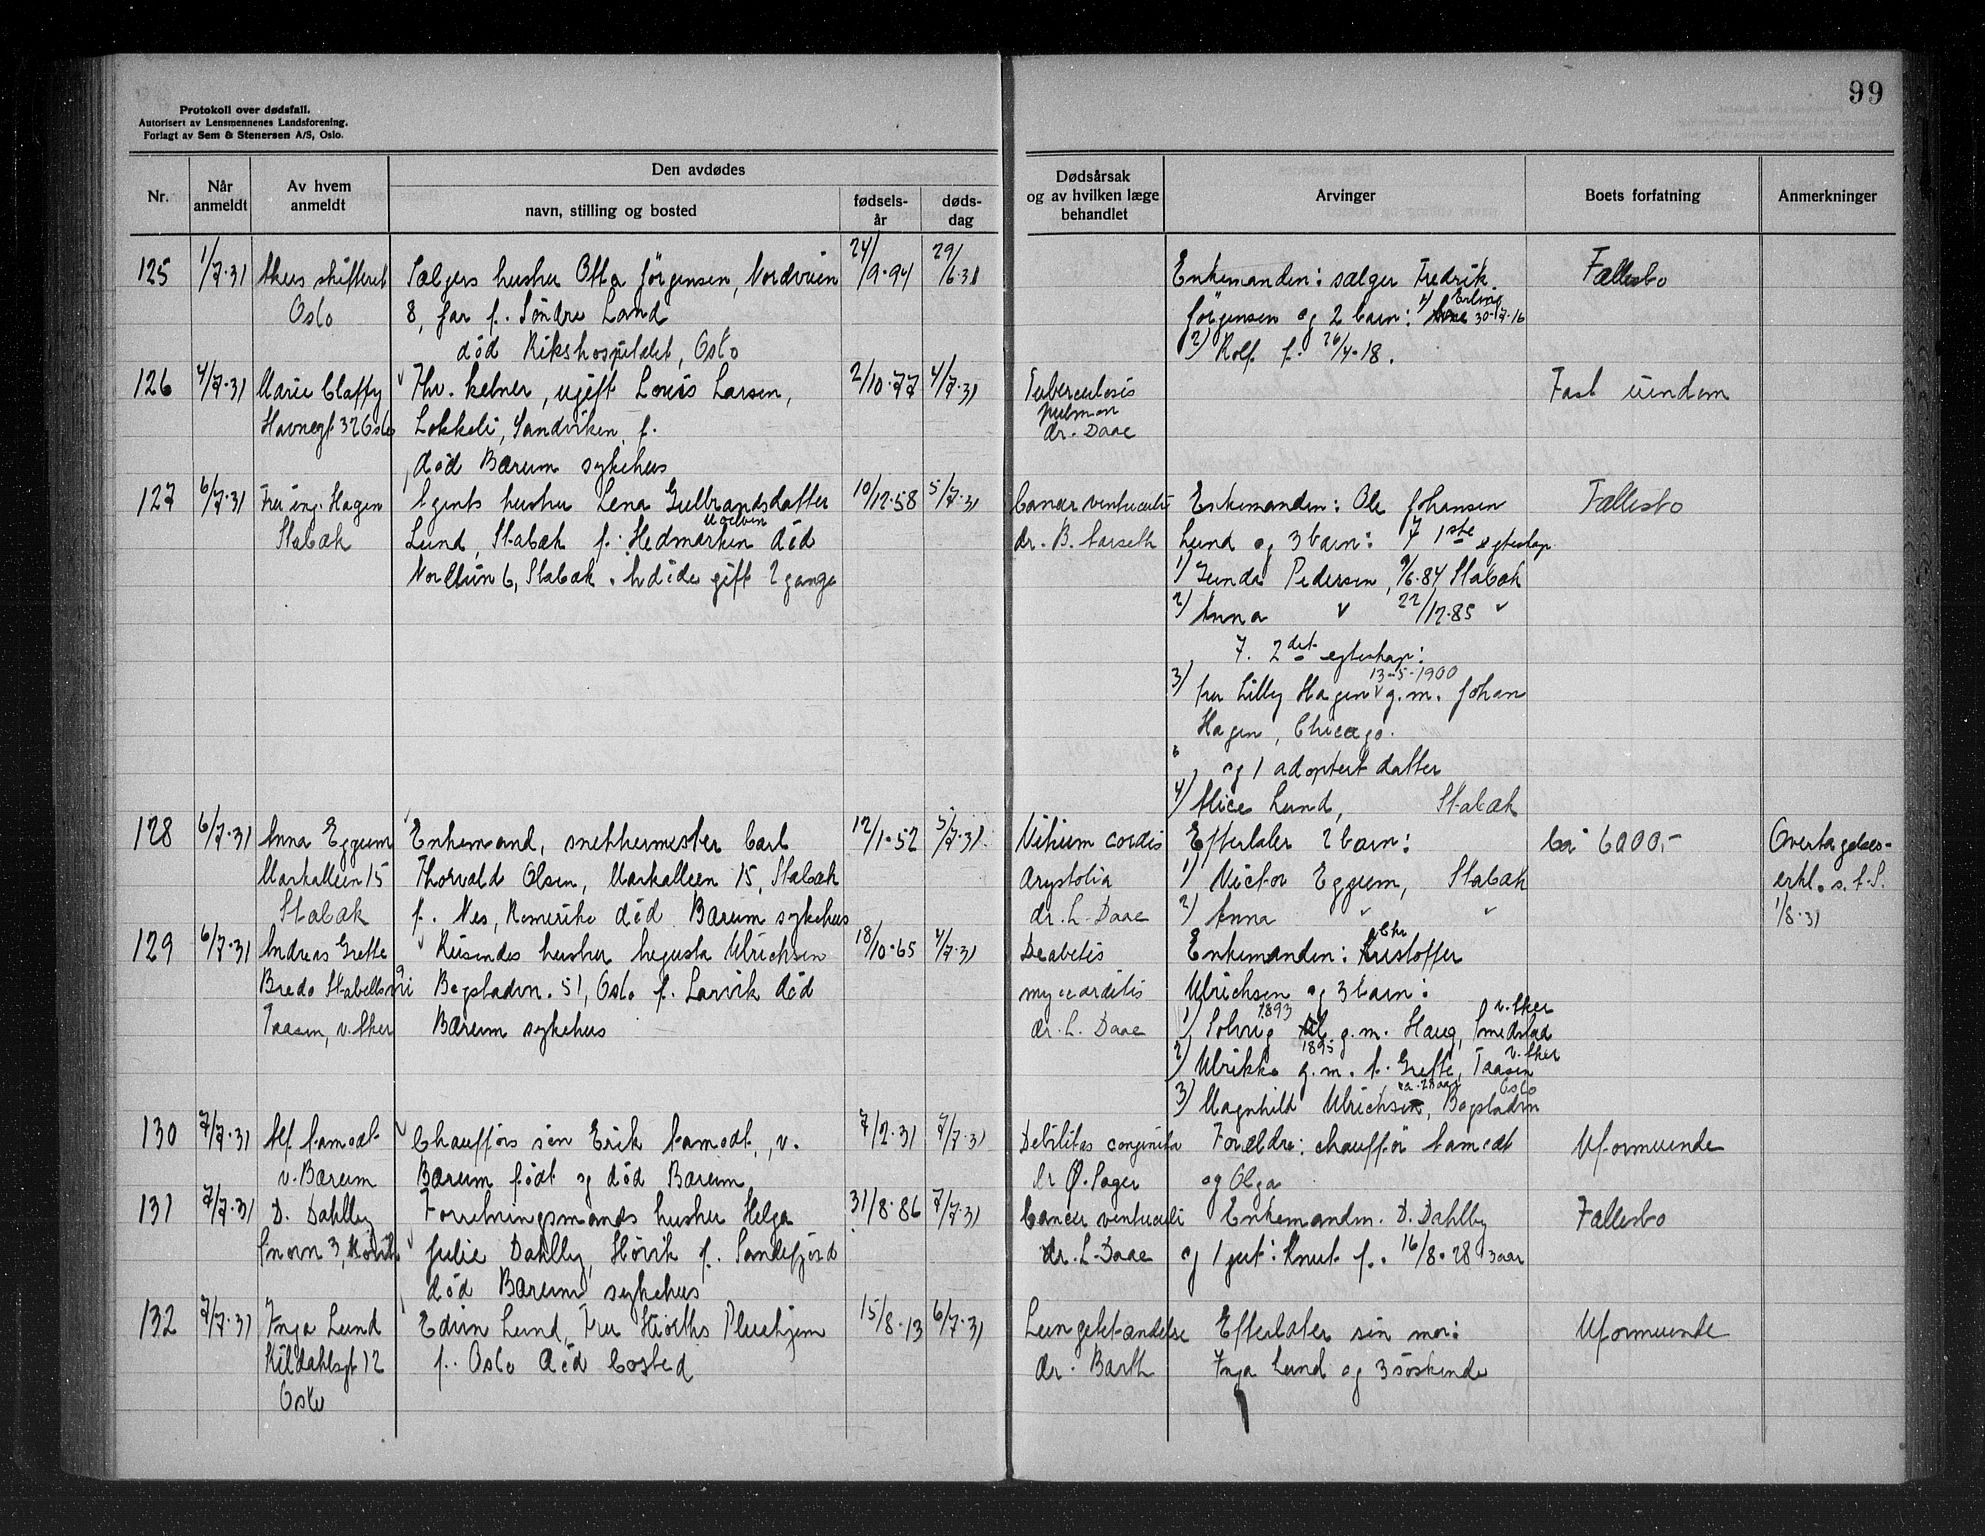 99
Protokoll over dødsfall.
Autorisert av Lensmennenes Landsforening.
Forlagt av Sem & Stenersen A/S, Oslo.
Nr.
Når anmeldt
Av hvem anmeldt
Den avdødes
navn, stilling og bosted
fødsels-år
døds-dag
Dødsårsak og av hvilken læge behandlet
Arvinger
Boets forfatning
Anmerkninger
125 1/7·31 Akers skifteret Sælgers hustru Otta Jörgensen, Nordveien 24/9·94 29/6·31 Enkemanden: sælger Fredrik Fællesbo
Oslo 8, Jar f. Söndre Land Jörgensen og 2 barn: 1) Erling 30-7-16
död Rikshospitalet, Oslo 2) Rolf f. 26/4·18.
126 4/7·31 Marie Claffy Fhv. kelner, ugift Louis Larsen, 2/10·77 4/7·31 Tuberculosis Fast eiendom
Havnegt 32 Oslo Lökkeli, Sandviken f. pulmon
död Bærum sykehus dr. Daae
127 6/7·31 Fru ing. Hagen Agents hustru Lena Gulbrandsdatter 10/12·58 5/7·31 Cancer ventriculi Enkemanden: Ole Johansen Fællesbo
Stabæk Lund, Stabæk f. Hedmarken död dr. B. Aarseth Lund og 3 barn: 7 1ste egteskap
6, Stabæk. Avdöde gift 2 gange 1) Gunda Pedersen, 9/6·84 Stabæk
2) Anna v 22/12·85 v
7. 2det egteskap:
13-5-1900
3) fru Lilly Hagen v g.m. Johan
Hagen, Chicago.
og 1 adoptert datter
4) Alice Lund, Stabæk
128 6/7·31 Anna Eggum Enkemand, snekkermester Carl 12/1·52 5/7·31 Vitium cordis Efterlater 2 barn: Ca 6000,- Overtagelses-
Markalleen 15 Thorvald Olsen, Markalleen 15, Stabæk Asystolia 1) Victor Eggum, Stabæk erkl. s.t.S.
Stabæk f. Nes, Romerike död Bærum sykehus dr. L. Daae 2) Anna v v 1/8·31
129 6/7·31 Andreas Grette Reisendes hustru Augusta Ulrichsen 18/10·65 4/7·31 Deabetis Enkemanden: Kristoffer
Chr
Bredo Stabells vei 9 Bogstadvn. 51, Oslo f. Larvik död myocarditis Ulrichsen og 3 barn:
Taasen, v. Aker Bærum sykehus dr. L. Daae 1) Solveig 1893 g.m. Haug, Smedstad v. Aker
2) Ulrikke 1895 g.m. A. Grette, Taasen v. Aker
3) Magnhild Ulrichsen, Bogstadvn Oslo
130 7/7·31 Alf Aamodt Chaufförs sön Erik Aamodt, v. 7/2·31 7/7·31 Debilitas congenita Forældre: chaufför Aamodt Uformuende
v. Bærum Bærum födt og död Bærum dr Ø. Sager og Olga
131 7/7·31 D. Dahlby Forretningsmands hustru Helga 31/8·86 7/7·31 Cancer ventriculi Enkemanden. D. Dahlby Fællesbo
3, Hövik Julie Dahlby, Hövik f. Sandefjord dr. L. Daae og 1 gut: Knut f. 16/8·28 3 aar
död Bærum sykehus
132 7/7·31 Inga Lund Edvin Lund, Fru Hiorths Pleiehjem 15/8·13 6/7·31 Lungebetændelse Efterlater sin mor: Uformuende
Kildahlsgt 12 f. Oslo död bosted dr. Barth Inga Lund og 3 söskende
Oslo